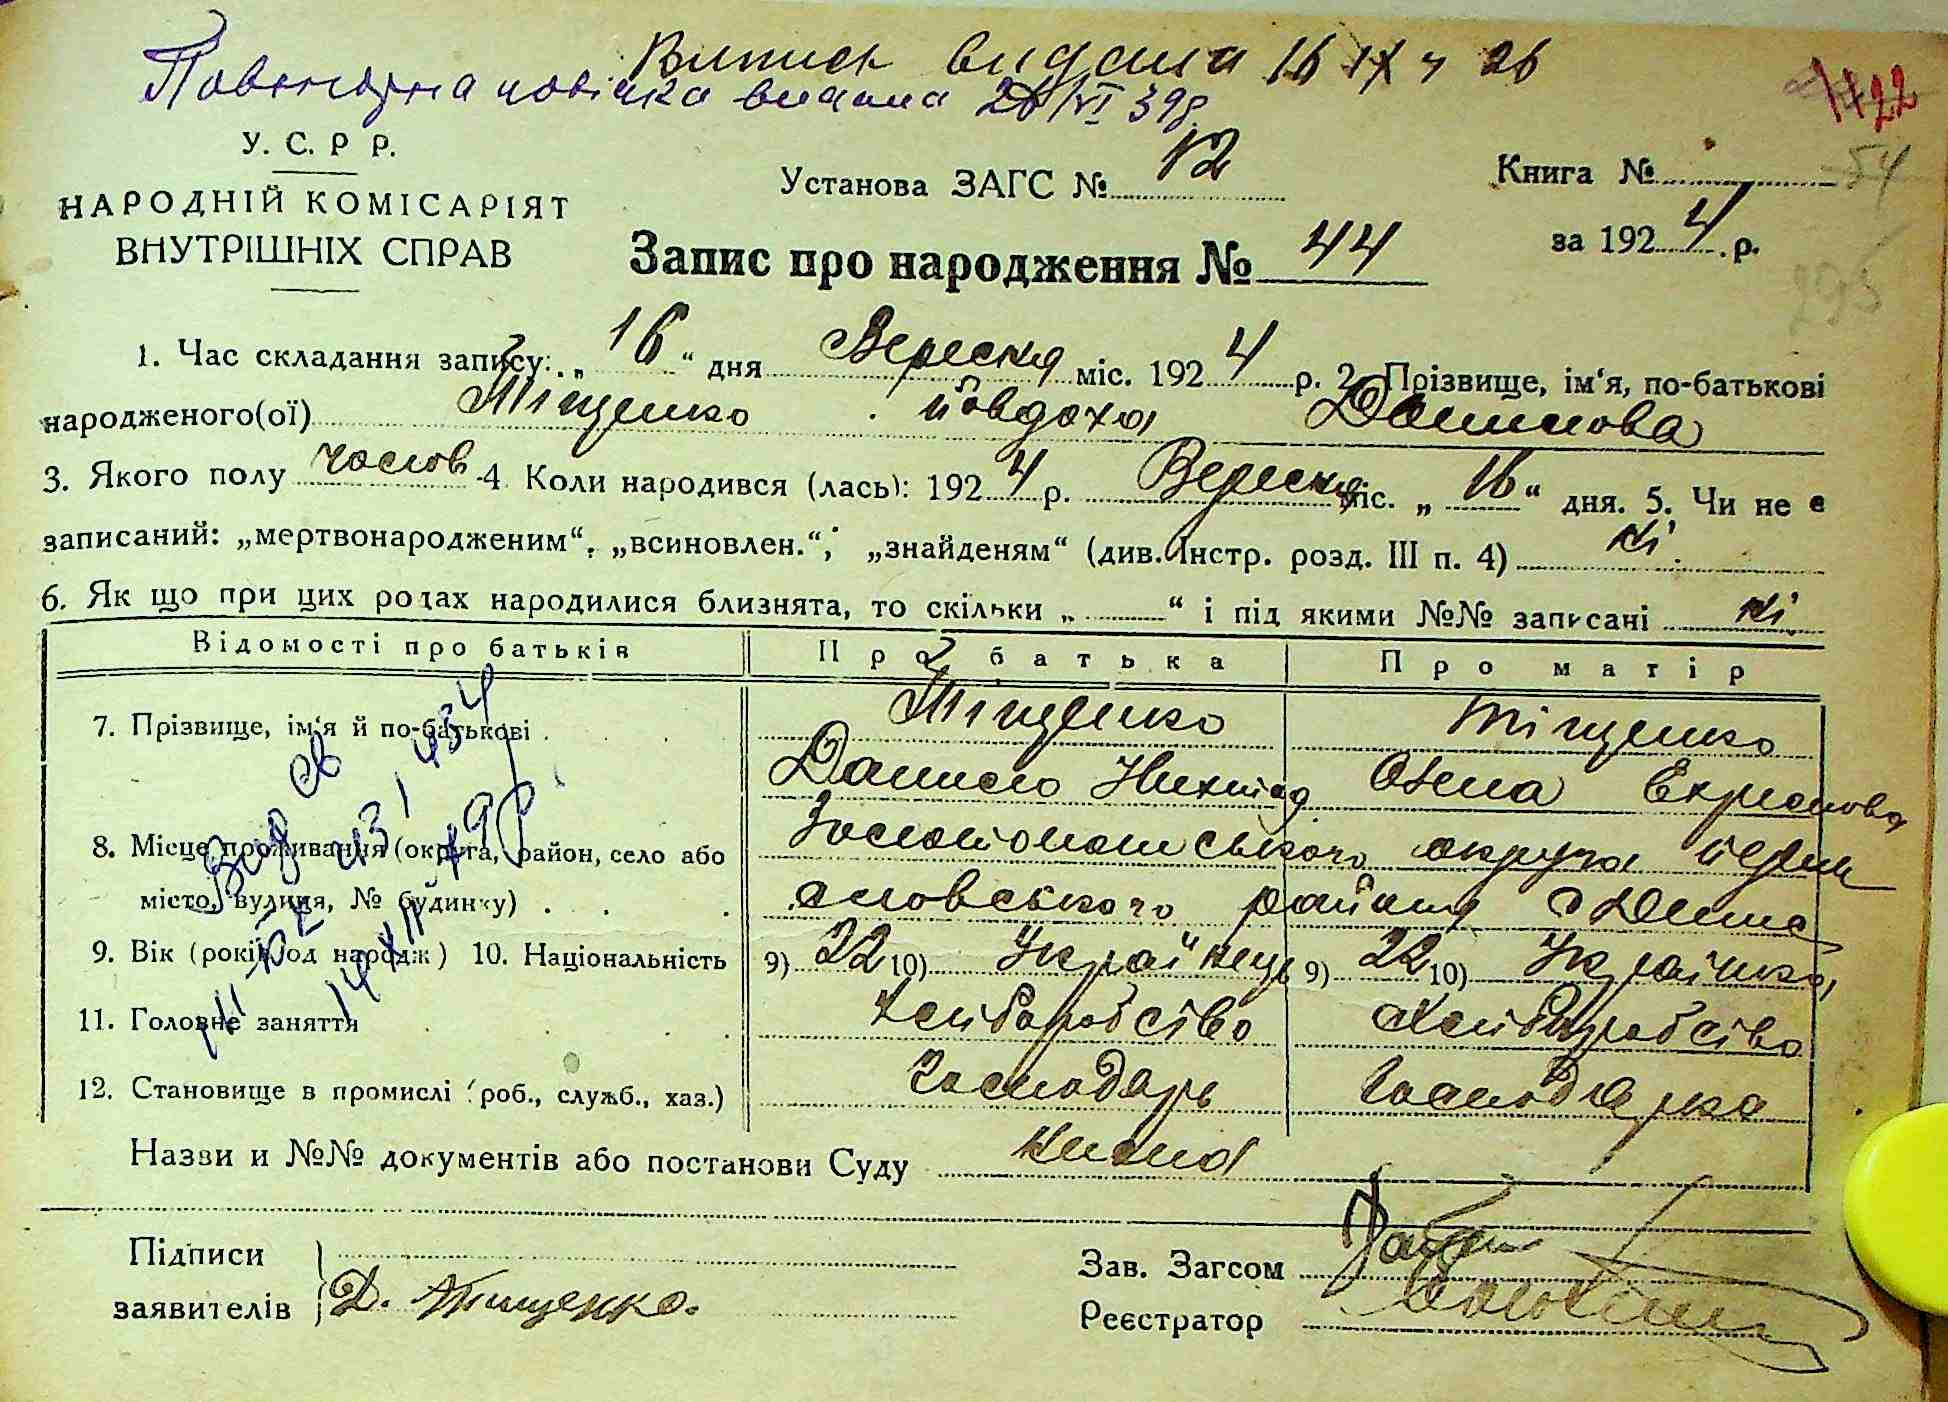 Випись видана 16 IX 26
Повторна довідка видана 26/VI 39р.
У. С. Р Р.
НАРОДНІЙ КОМІСАРІЯТ
ВНУТРІШНІХ СПРАВ
Установа ЗАГС № 12
Книга №
22
54
295
за 1924 р.
Запис про народження № 44
1. Час складання запису: „ 16 “ дня Вересня міс. 1924 р. 2. Прізвище, ім‘я, по-батькові
народженого(ої) Тіщенко Йовдоха Данилова
3. Якого полу 4. Коли народився (лась): 1924 р. Вересня міс. „ 16 “ дня. 5. Чи не є
записаний: „мертвонародженим“, „всиновлен.“, „знайденям“ (див. Інстр. розд. III п. 4) ні
6. Як що при цих родах народилися близнята, то скільки „ “ і під якими №№ записані ні
Відомості про батьків Про батька Про матір
7. Прізвище, ім‘я й по-батькові Тіщенко Тіщенко
Данило Олена
8. Місце проживання (округа, район, село або Золотоношського округа
місто, вулиця, № будинку) району
9. Вік (років од народж) 10. Національність 9) 22 10) Українець 9) 22 10) Українка
11. Головне заняття Хліборобство Хліборобство
12. Становище в промислі (роб., служб., хаз.) Господарь Господарка
Назви и №№ документів або постанови Суду
Підписи
заявителів Д. Тищенко.
Зав. Загсом
Реєстратор